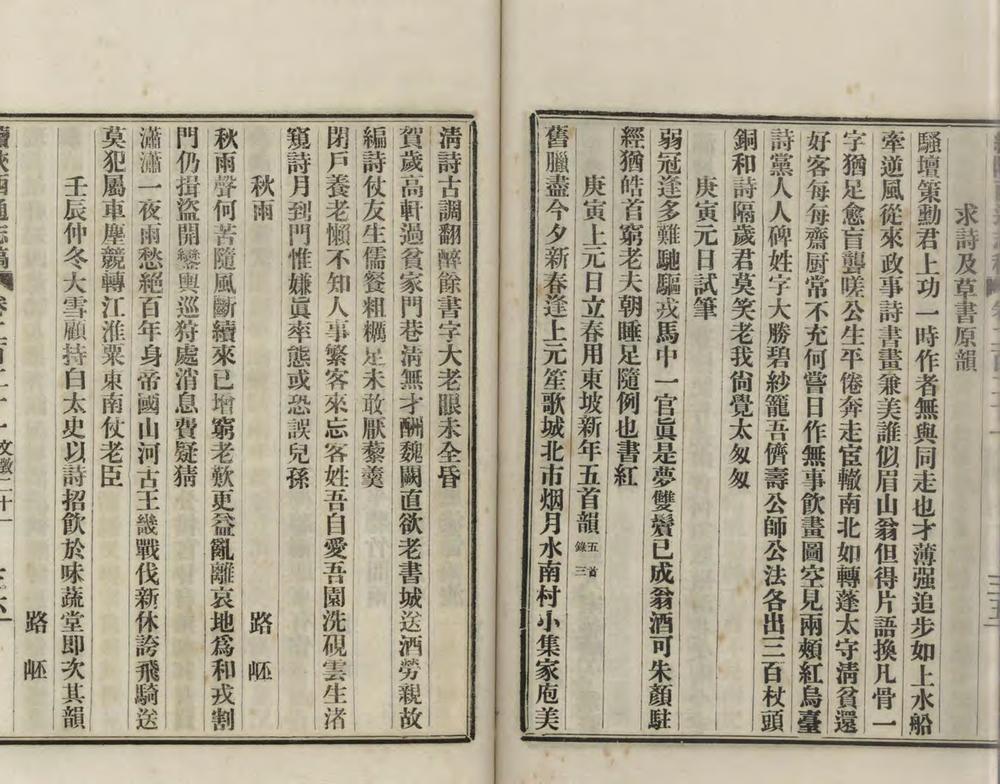 求詩及草書原韻
騷壇策勳君上功一時作者無與同走也才薄强追步如上水船
牽逆風從來政事詩書畫兼美誰似眉山翁但得片語換凡骨一
字猶足愈盲聾嗟公生平倦奔走宦轍南北如轉蓬太守淸貧還
好客每每齋厨常不充何嘗日作無事飲畫圖空見兩頰紅烏臺
詩黨人人碑姓字大勝碧紗籠吾儕壽公師公法各出三百杖頭
銅和詩隔歲君莫笑老我尙覺太匆匆
庚寅元日試筆
弱冠逢多難馳驅戎馬中一官眞是夢雙鬢已成翁酒可朱顏駐
經猶皓首窮老夫朝睡足隨例也書紅
庚寅上元日立春用東坡新年五首韻五首錄三
舊臘盡今夕新春逢上元笙歌城北市烟月水南村小集家庖美
淸詩古調翻醉餘書字大老眼未全昏
賀歲高軒過貧家門巷淸無才酬魏闕直欲老書城送酒勞親故
編詩仗友生儒餐粗糲足未敢厭藜羹
閉戶養老懶不知人事繁客來忘客姓吾自愛吾園洗硯雲生渚
窺詩月到門惟嫌眞率態或恐誤兒孫
秋雨 路岯
秋雨聲何苦隨風斷續來已增窮老歎更益亂離哀地爲和戎割
門仍揖盜開鑾輿巡狩處消息費疑猜
瀟瀟一夜雨愁絕百年身帝國山河古王畿戰伐新休誇飛騎送
莫犯屬車塵競轉江淮粟東南仗老臣
壬辰仲冬大雪顧持白太史以詩招飲於味蔬堂卽次其韻
路岯
續陝西通志稿 卷二百二十一 文徵二十一